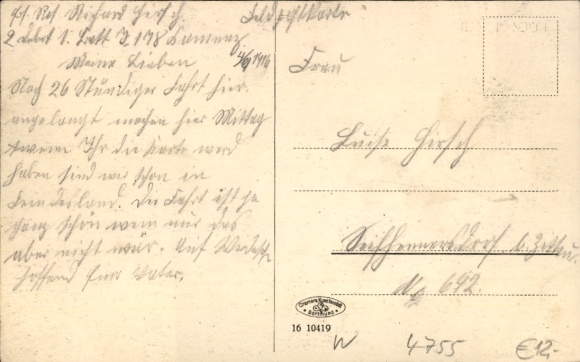 Ers. Res. Richard Hirsch. Feldpostkarte
2 Rekrt 1. Batt I. 178 Kamenz
Meine Lieben 4/9 1916
Nach 26 Stündiger Fahrt hier
angelangt machen hier Mittag
wenn Ihr die Karte werd
haben sind wir schon in
Feindesland. Die Fahrt ist ja
ganz schön wenn nur das
aber nicht wär. Auf Wiedersehn
hoffend Euer Vater.
Frau
Luise Hirsch
Seifhennersdorf b. Zittau.
No 692.
Cramers Kunstanstalt
Dortmund
16 10419
W 4755 €12,-